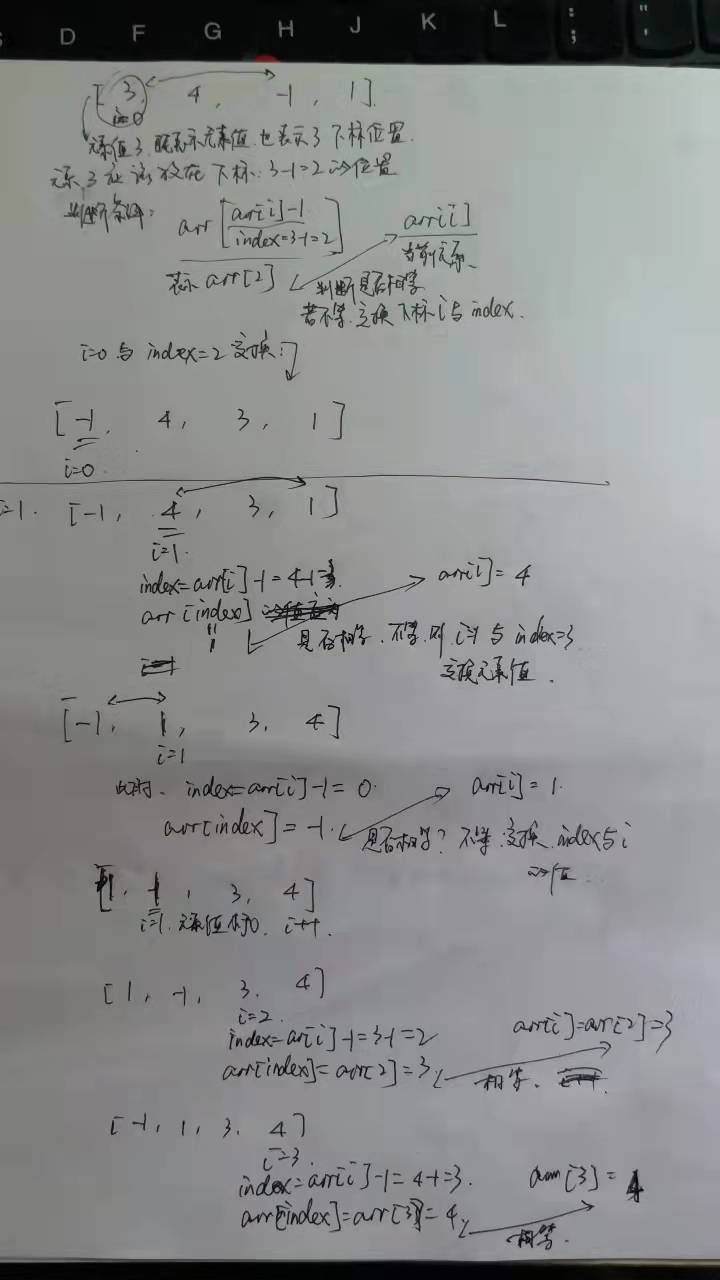 D F G H J K L : ; " '
[3, 4, -1, 1].
i=0
元素值3, 既表示元素值, 也表示3下标位置.
元素3应该放在下标: 3-1=2的位置
判断条件: arr[arr[i]-1] arr[i]
index=3-1=2 当前元素
表示arr[2] 判断是否相等
若不等, 交换下标i与index.
i=0与index=2交换:
[-1, 4, 3, 1]
i=0
i=1. [-1, 4, 3, 1]
i=1.
index=arr[i]-1=4-1=3. arr[i]=4
arr[index]
"
1 是否相等, 不等, 则 i=1与index=3
交换元素值.
[-1, 1, 3, 4]
i=1
此时, index=arr[i]-1=0. arr[i]=1.
arr[index]=-1. 是否相等? 不等, 交换index与i
的值.
[1, -1, 3, 4]
i=1, 元素值 0, i++.
[1, -1, 3, 4]
i=2.
index=arr[i]-1=3-1=2 arr[i]=arr[2]=3
arr[index]=arr[2]=3 相等.
[-1, 1, 3, 4]
i=3.
index=arr[i]-1=4-1=3. arr[3]=4
arr[index]=arr[3]=4 相等.